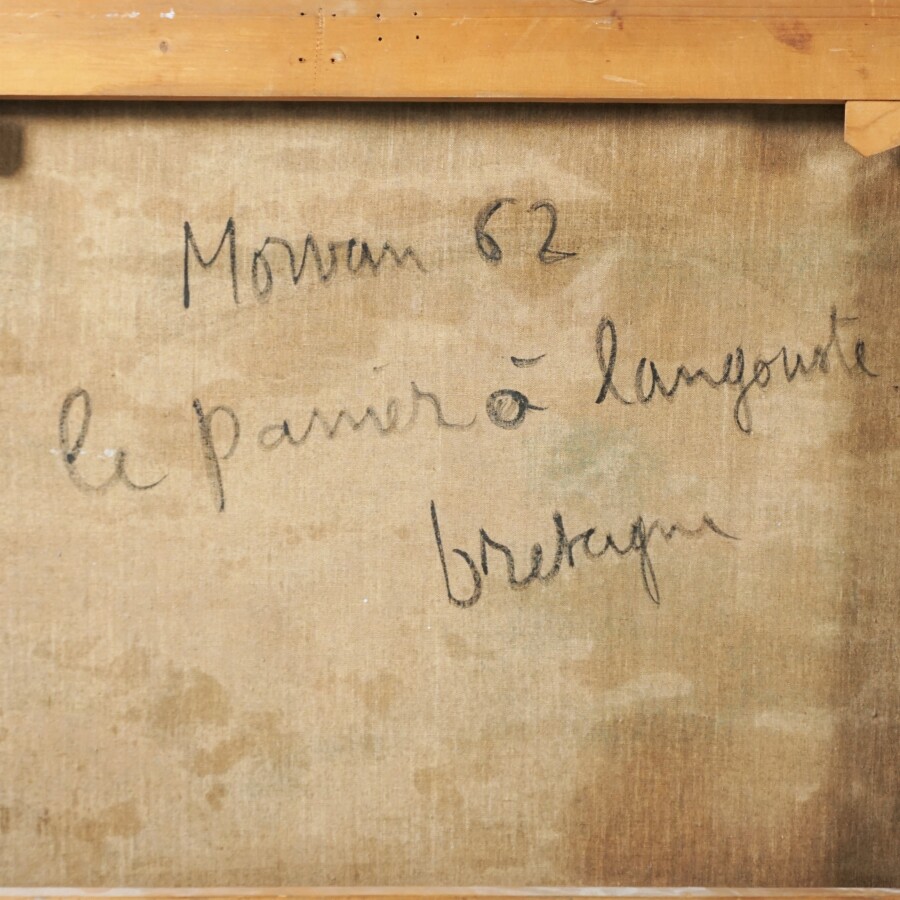 Morvan 62
le panier à langouste
bretagne